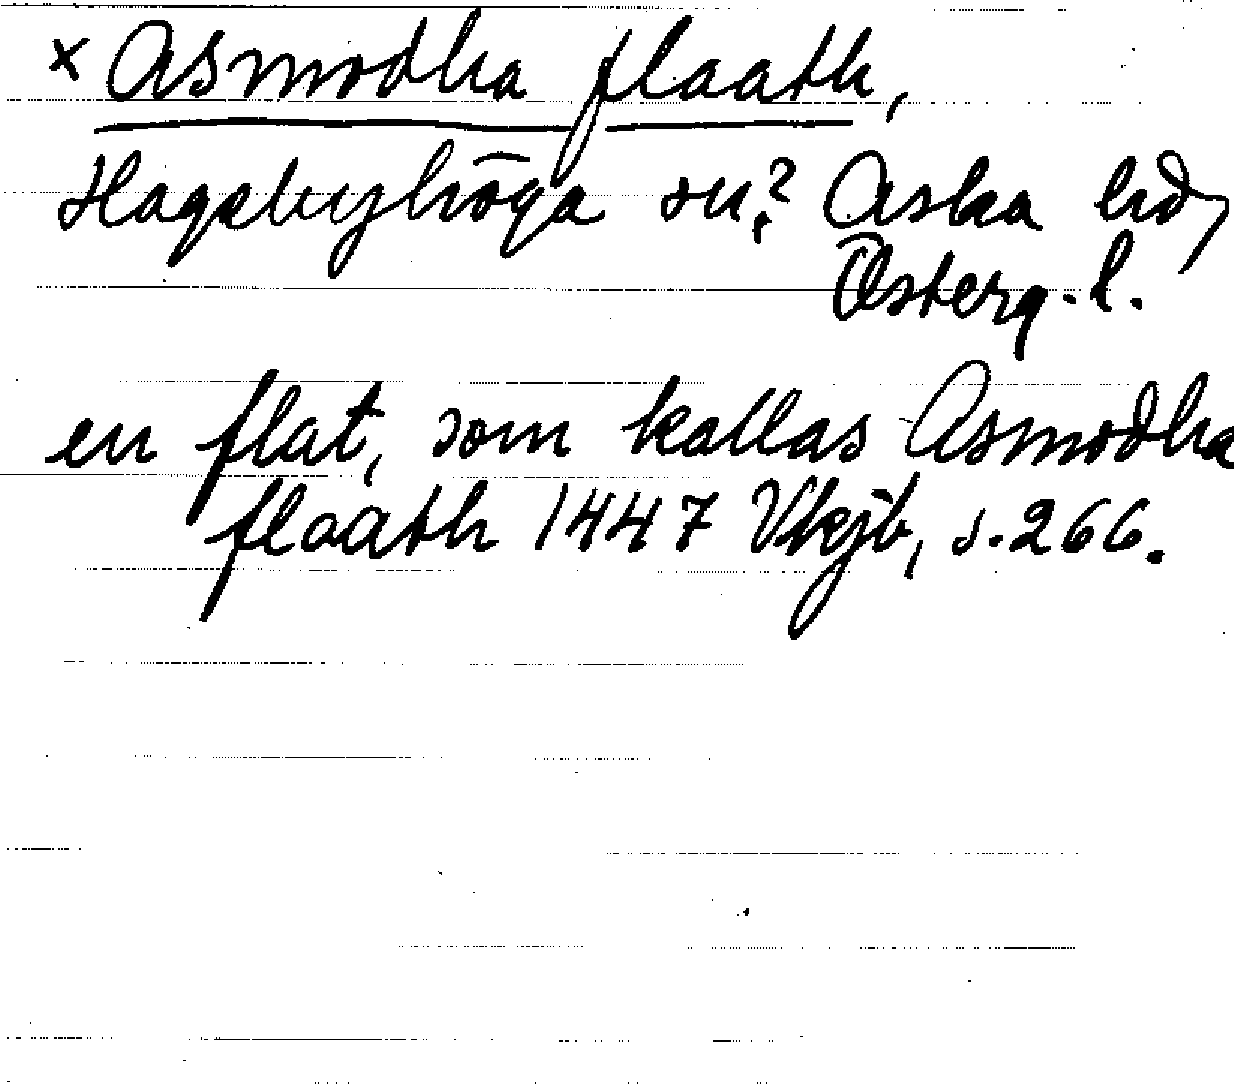 x Asmodha flaath,
Hagebyhöga sn? Aska hd,
Österg. l.
en flat, som kallas Asmodha
flaath 1447 Vkjb, s. 266.